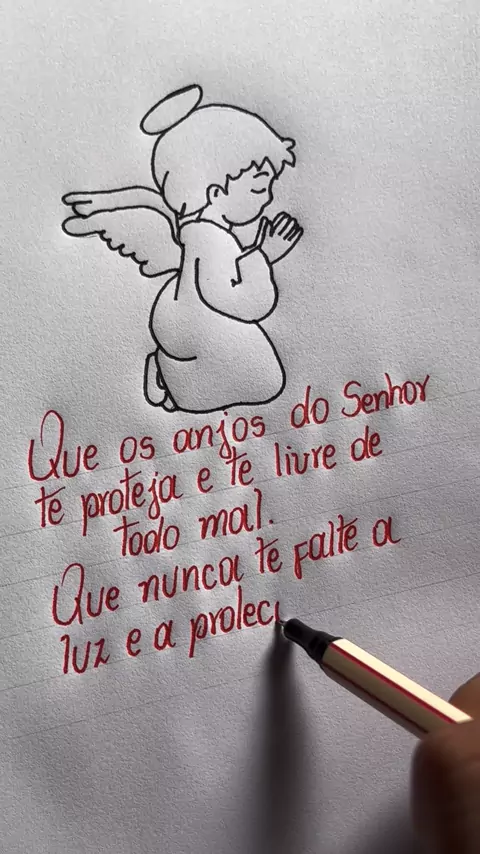 Que os anjos do Senhor
te proteja e te livre de
todo mal.
Que nunca te falte a
luz e a prolec